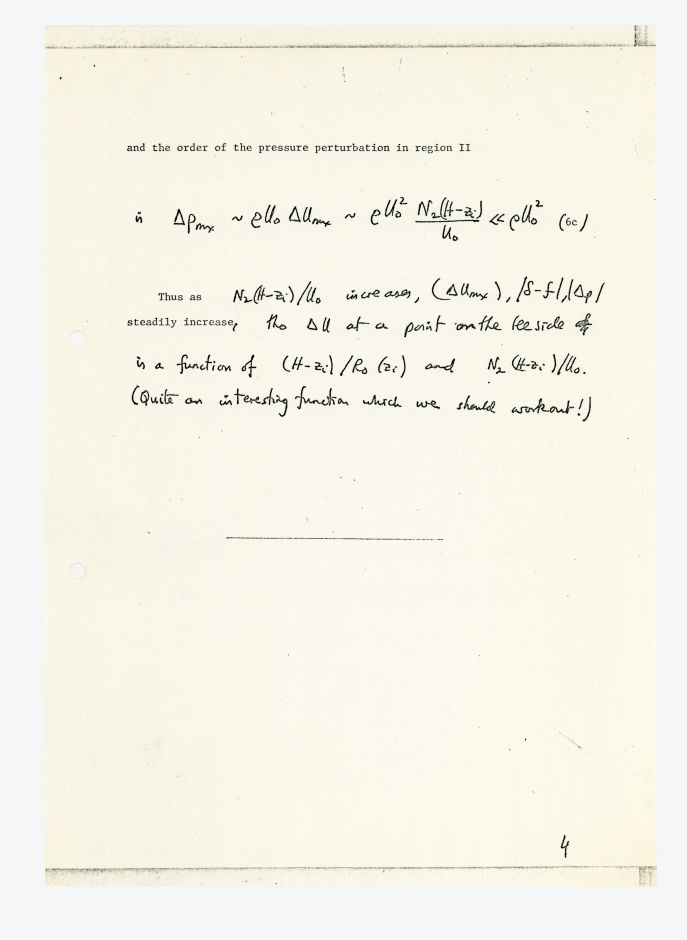 and the order of the pressure perturbation in region II
is Δp_mx ~ ρU₀ ΔU_mx ~ ρU₀² N₂(H-zᵢ)/U₀ ≪ ρU₀² (6c)
Thus as N₂(H-zᵢ)/U₀ increases, (ΔU_mx), |δ-f|, |Δp|
steadily increase, the ΔU at a point on the lee side
is a function of (H-zᵢ)/R₀(zᵢ) and N₂(H-zᵢ)/U₀.
(Quite an interesting function which we should workout!)
4